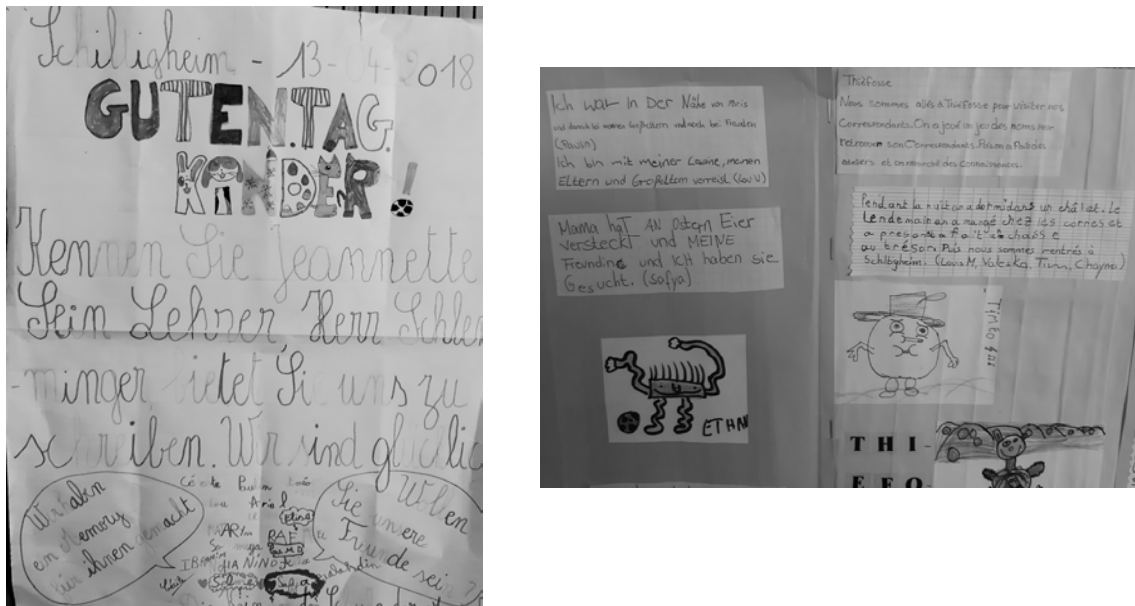 Schiltigheim - 13-04-2018
GUTEN.TAG.
KINDER!
Kennen Sie Jeannette
Sein Lehrer, Herr Schlem
-minger bietet Sie uns zu
schreiben. Wir sind glücklic
Wir haben
ein Memory
für ihnen gemacht
Wollen
Sie unsere
Freunde sein?
Ariel
Elise
RAF
IBRAHIM
NINO
Safya
Ich war in Der Nähe von Paris
und danach bei meinen Großeltern und noch bei Freunden
(Paulin)
Ich bin mit meiner Cousine, meinen
Eltern und Großeltern verreist (Lou V)
Mama hat AN Ostern Eier
versteckt und MEINE
Freundine und ICH haben sie
Gesucht. (Safya)
ETHAN
Thiéfosse
Nous sommes allés à Thiéfosse pour visiter nos
Correspondants. On a joué un jeu des noms pour
retrouver son Correspondants. Puis on a fait des
ateliers et un marché des connaissances.
Pendant la nuit on a dormi dans un châlet. Le
Lendemain on a mangé chez les corres et
a fait chasse
au trésor. Puis nous sommes rentrés à
Schiltigheim. (Louis M, Valeska, Timi, Chayma)
THI-
EFO